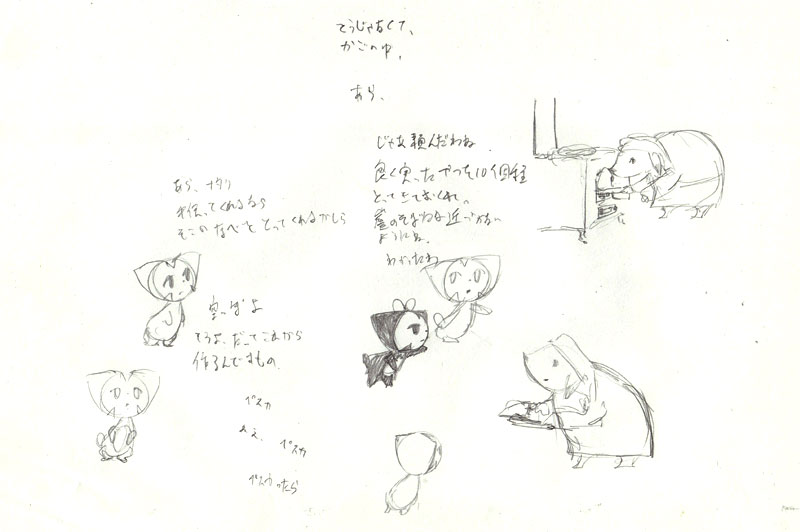 そうじゃなくて、
かごの中、
あら、
じゃあ頼んだわね、
良く実ったやつを10個程
とってきておくれ。
崖のそばには近づかない
ようにね。
わかったね
あら、ナタリ
手伝ってくれるなら
そこのなべをとってくれるかしら
空っぽよ
そうよ、だってこれから
作るんですもの
ペスカ
ねえ、ペスカ
ペスカったら